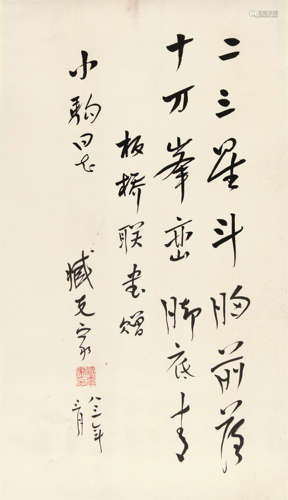 二三星斗胸前落
十万峯峦脚底青
板桥联书赠
小同志
臧克家
八三年
月